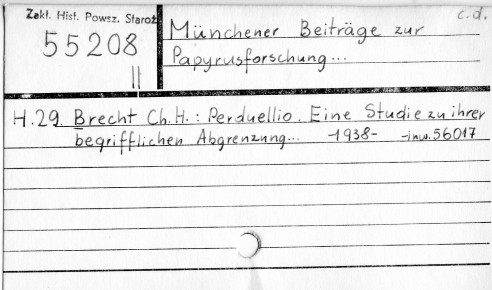 Zakł. Hist. Powsz. Staroż
c.d.
55208
II
Münchener Beiträge zur
Papyrusforschung...
H.29. Brecht Ch.H.: Perduellio. Eine Studie zu ihrer
begrifflichen Abgrenzung... -1938- -inw.56017